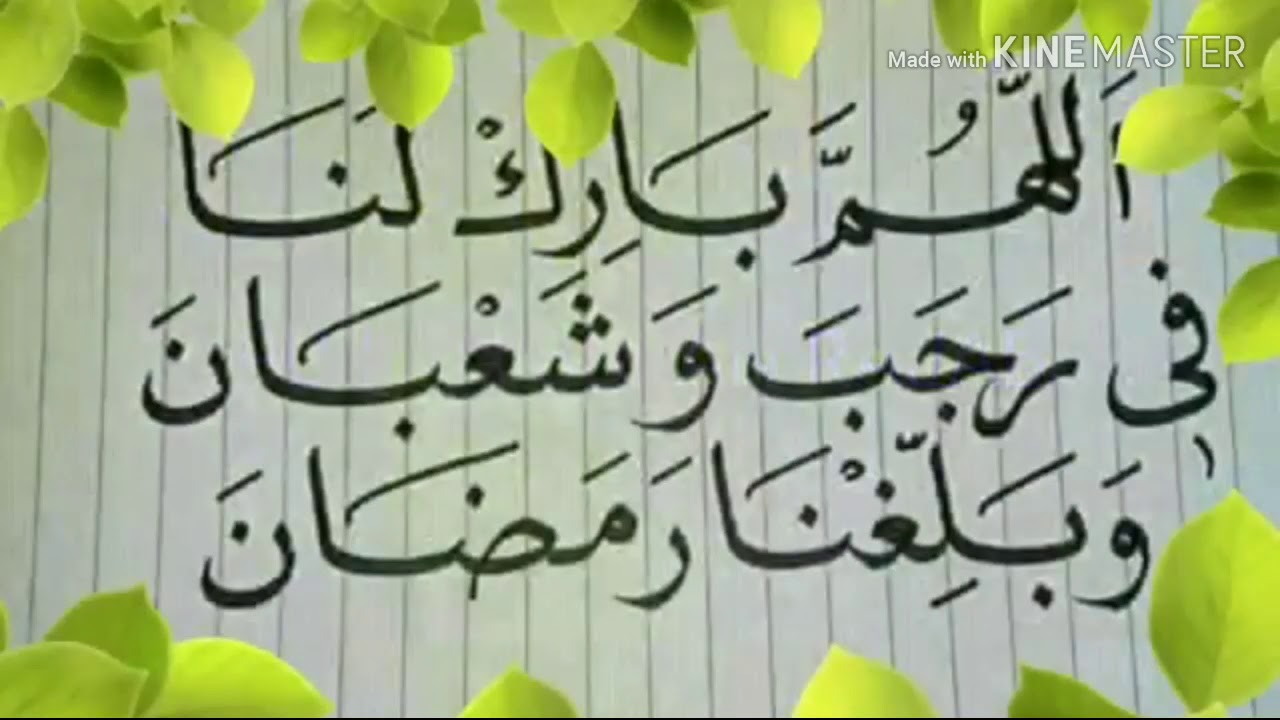 Made with KINEMASTER
اَللّٰهُمَّ بَارِكْ لَنَا
فِى رَجَبَ وَ شَعْبَانَ
وَبَلِّغْنَا رَمَضَانَ